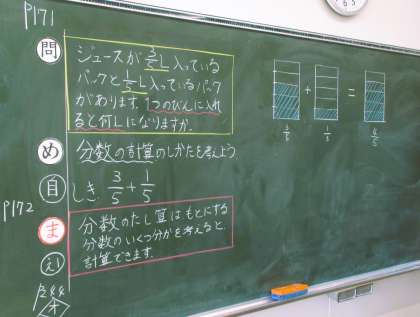 P171
問
ジュースが3/5L入っている
パックと1/5L入っているパック
があります。1つのびんに入れ
ると何Lになりますか。
め
分数の計算のしかたを考えよう
自
しき 3/5+1/5
P172
ま
分数のたし算はもとにする
分数のいくつ分かを考えると、
計算できます。
3/5
+
1/5
=
4/5